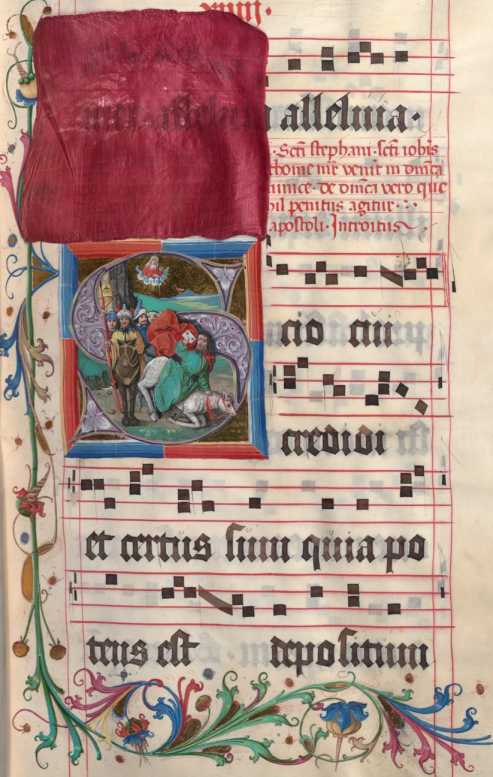 xviij.
alleluia.
Scti stephani. scti iohis
thome nisi venit in dnica
unice. de dnica vero que
hil penitus agitur.
apostoli. Introitus
Scio cui
credidi
et certus sum quia po
tens est depositum